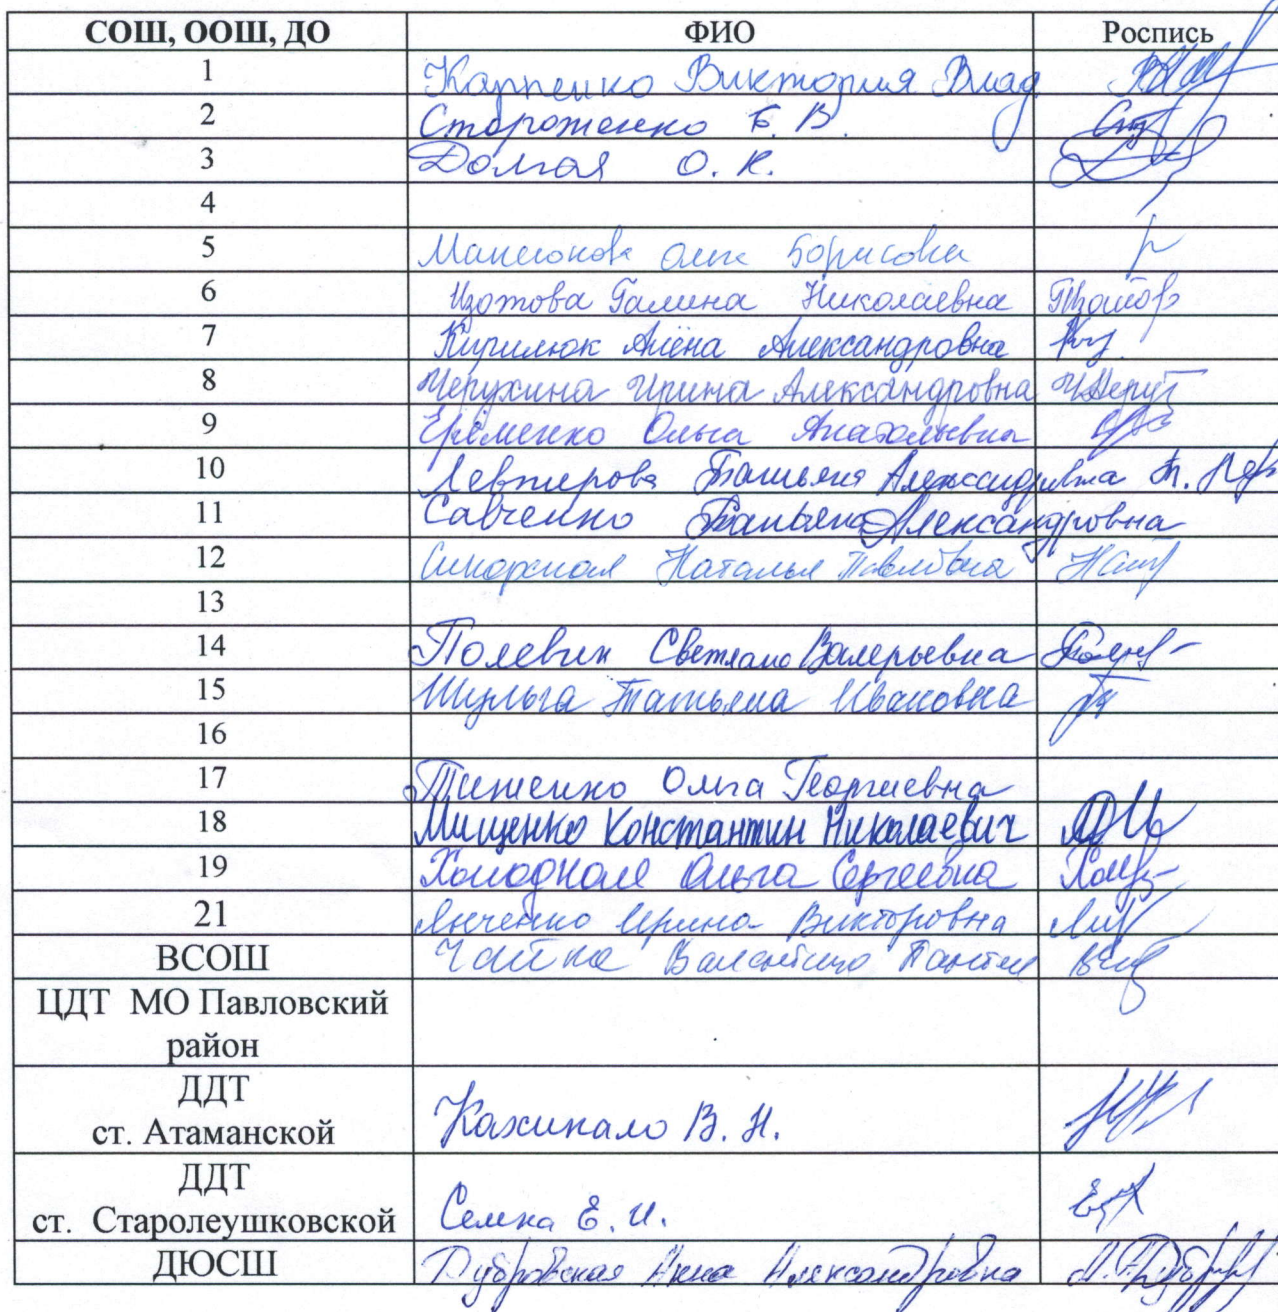 СОШ, ООШ, ДО ФИО Роспись
1 Карпенко Виктория Влад
2 Стороженко Б. В.
3 Долгая О. К.
4
5 Борисовна
6 Изотова Галина Николаевна
7 Кирилюк Алёна Александровна
8 Черухина Ирина Александровна
9 Ерёменко Ольга Анатольевна
10 Левтерова Татьяна Александровна
11 Савченко Татьяна Александровна
12 Сикорская Наталья Павловна
13
14 Полевик Светлана Валерьевна
15 Шульга Татьяна Ивановна
16
17 Тищенко Ольга Георгиевна
18 Мищенко Константин Николаевич
19 Холодная Ольга Сергеевна
21 Янченко Ирина Викторовна
ВСОШ Чайка Валентина
ЦДТ МО Павловский
район
ДДТ
ст. Атаманской В. Н.
ДДТ
ст. Старолеушковской Е. И.
ДЮСШ Дубровская Анна Александровна